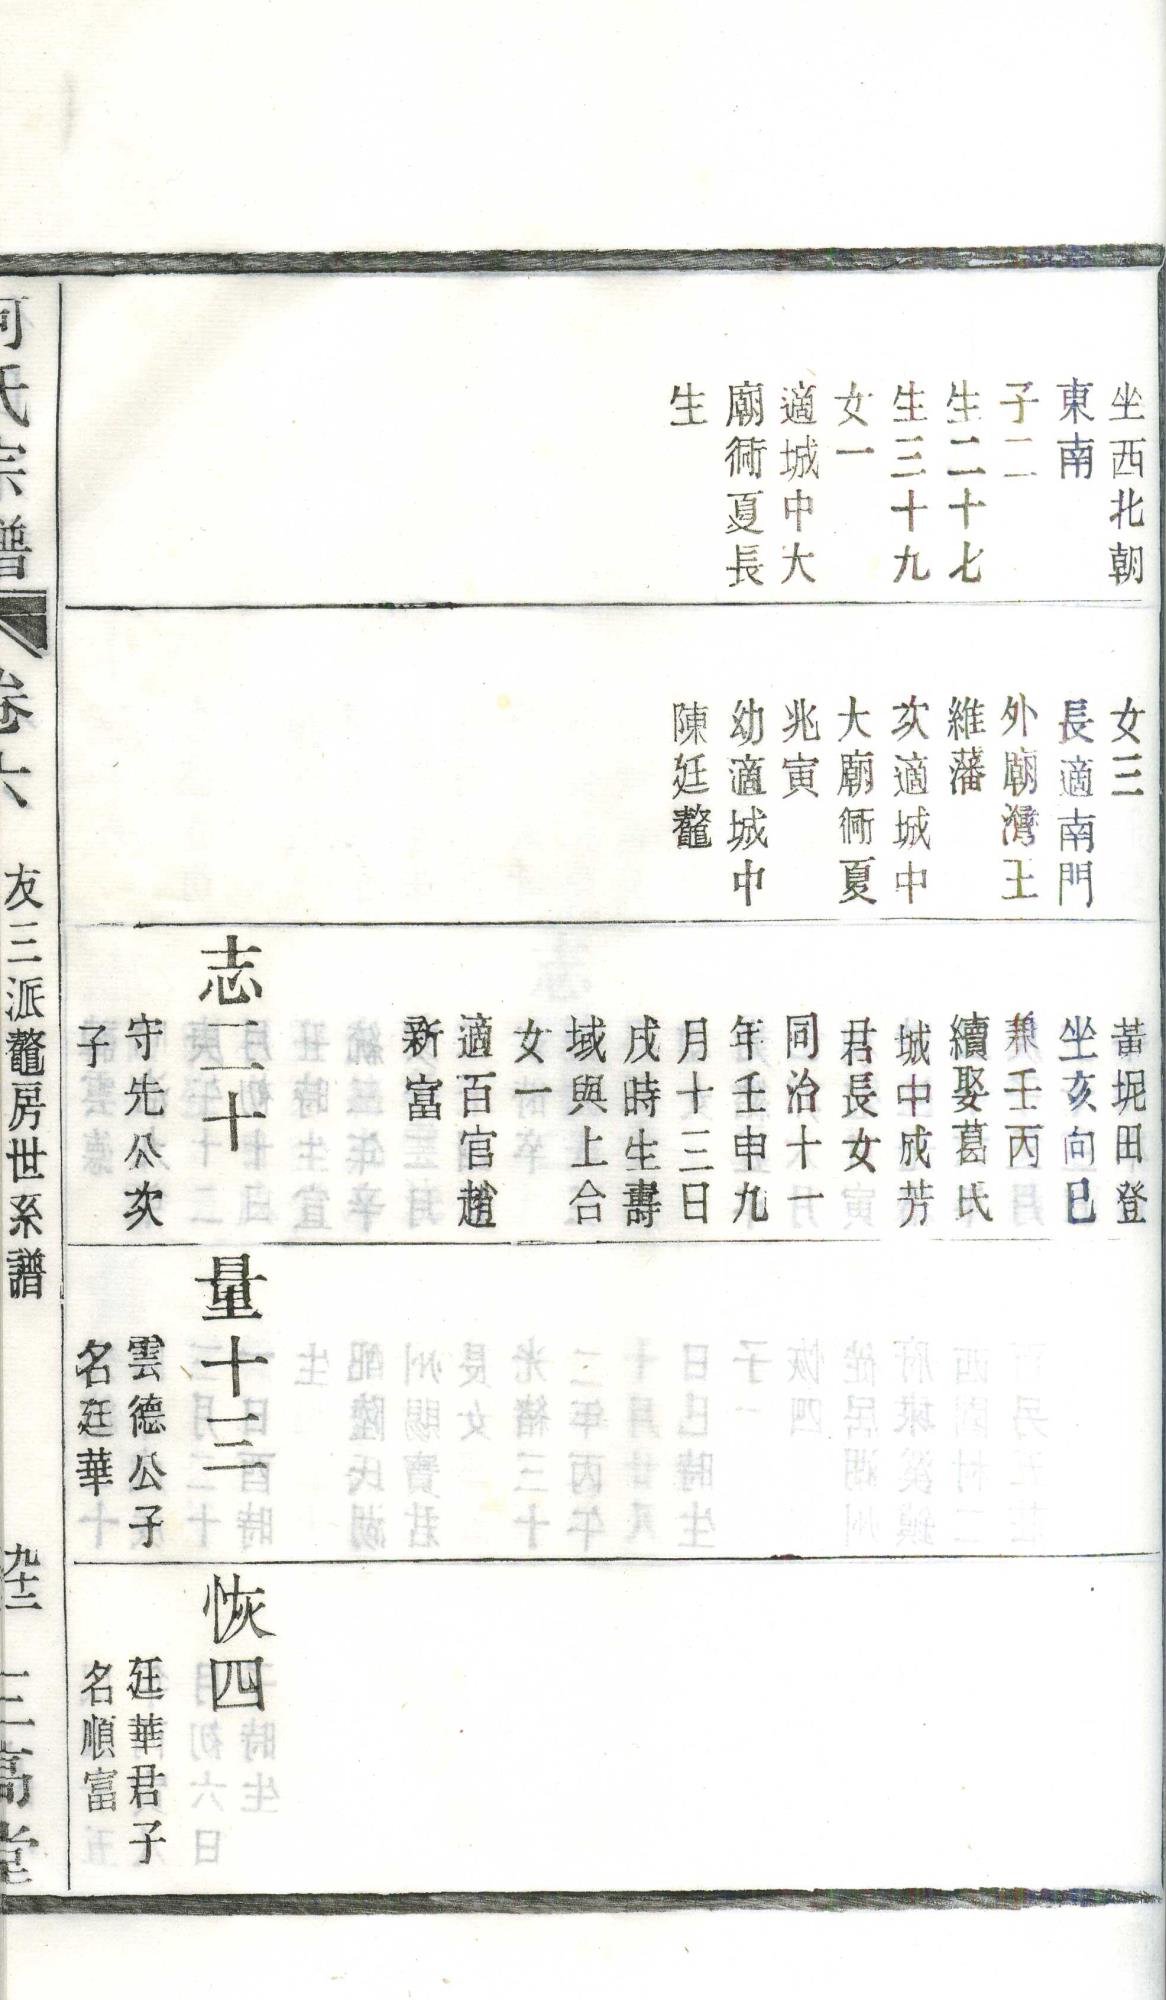 坐西北朝
東南
子二
生二十七
生三十九
女一
適城中大
廟衕夏長
生
女三
長適南門
外廟灣王
維藩
次適城中
大廟衕夏
兆寅
幼適城中
陳廷鼇
黃坭田登
坐亥向巳
兼壬丙
續娶葛氏
城中成芳
君長女
同治十一
年壬申九
月十三日
戌時生壽
域與上合
女一
適百官趙
新富
志二十
守先公次
子
量十三
雲德公子
名廷華
恢四
廷華君子
名順富
何氏宗譜
卷六
友三派鼇房世系譜
九十二
三高堂